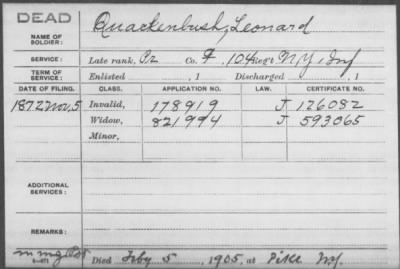 DEAD
NAME OF SOLDIER: Quackenbush, Leonard
SERVICE: Late rank, Pr Co. F, 104 Reg't N.Y. Inf
TERM OF SERVICE: Enlisted , 1 Discharged , 1
DATE OF FILING. CLASS. APPLICATION NO. LAW. CERTIFICATE NO.
1872 Nov, 5 Invalid, 178919 J 126082
Widow, 821994 J 593065
Minor,
ADDITIONAL SERVICES:
REMARKS:
Died Feby 5, 1905, at Pike N.Y.